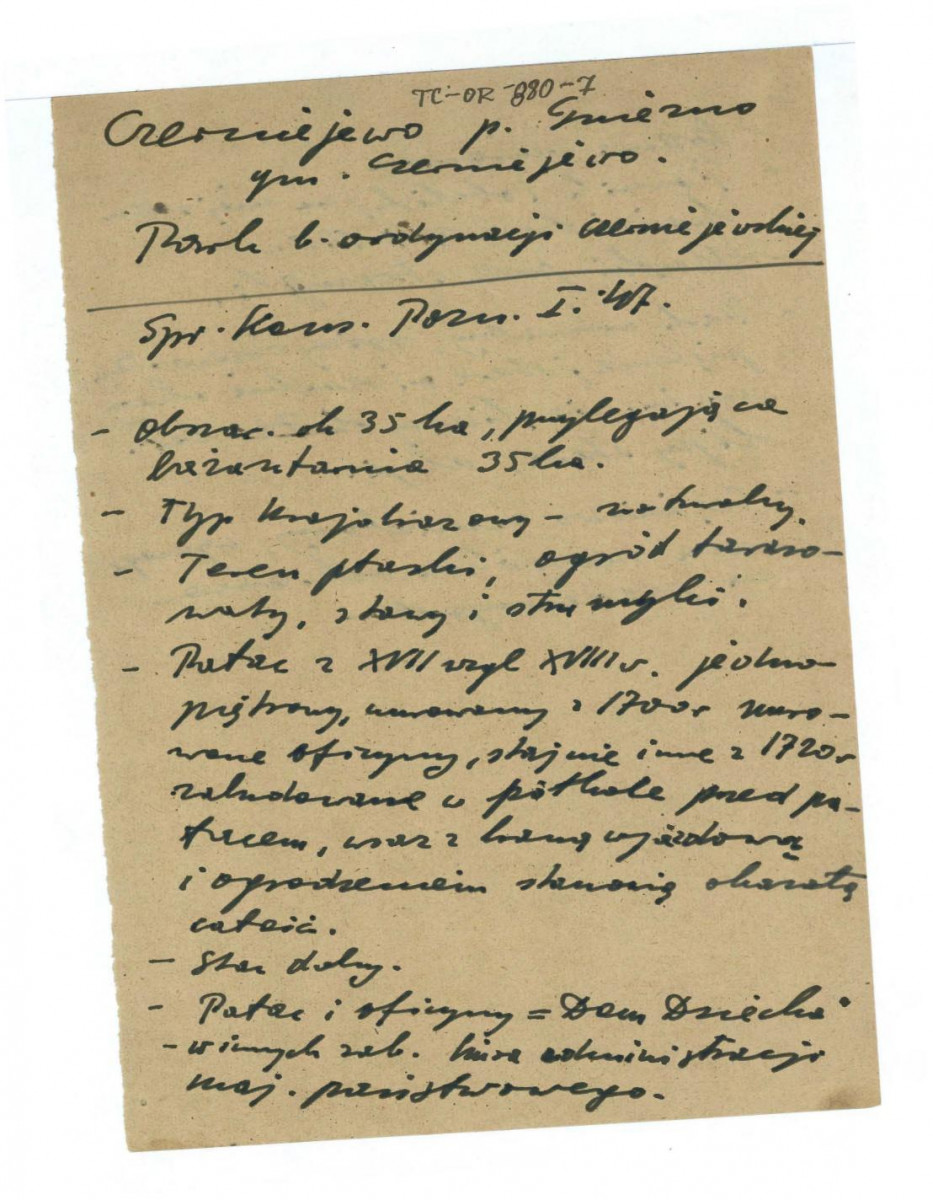 TC-OR-880-7
Czerniejewo p. Gniezno
gm. Czerniejewo.
Park b. ordynacji czerniejewskiej
Spr. Kons. Pozn. I. 47.
- obszar. ok 35 ha, przylegająca
bażantarnia 35 ha.
- Typ krajobrazowy - naturalny.
- Teren płaski, ogród taraso-
waty, stawy i strumyki.
- Pałac z XVII wzgl XVIII w. jedno-
piętrowy, murowany z 1700r muro-
wane oficyny, stajnie inne z 1720r
zabudowane w półkole przed pa-
łacem, wraz z bramą wjazdową
i ogrodzeniem stanowią okazałą
całość.
- Stan dobry.
- Pałac i oficyny = Dom Dziecka
- w innych zab. biura administracji
maj. państwowego.